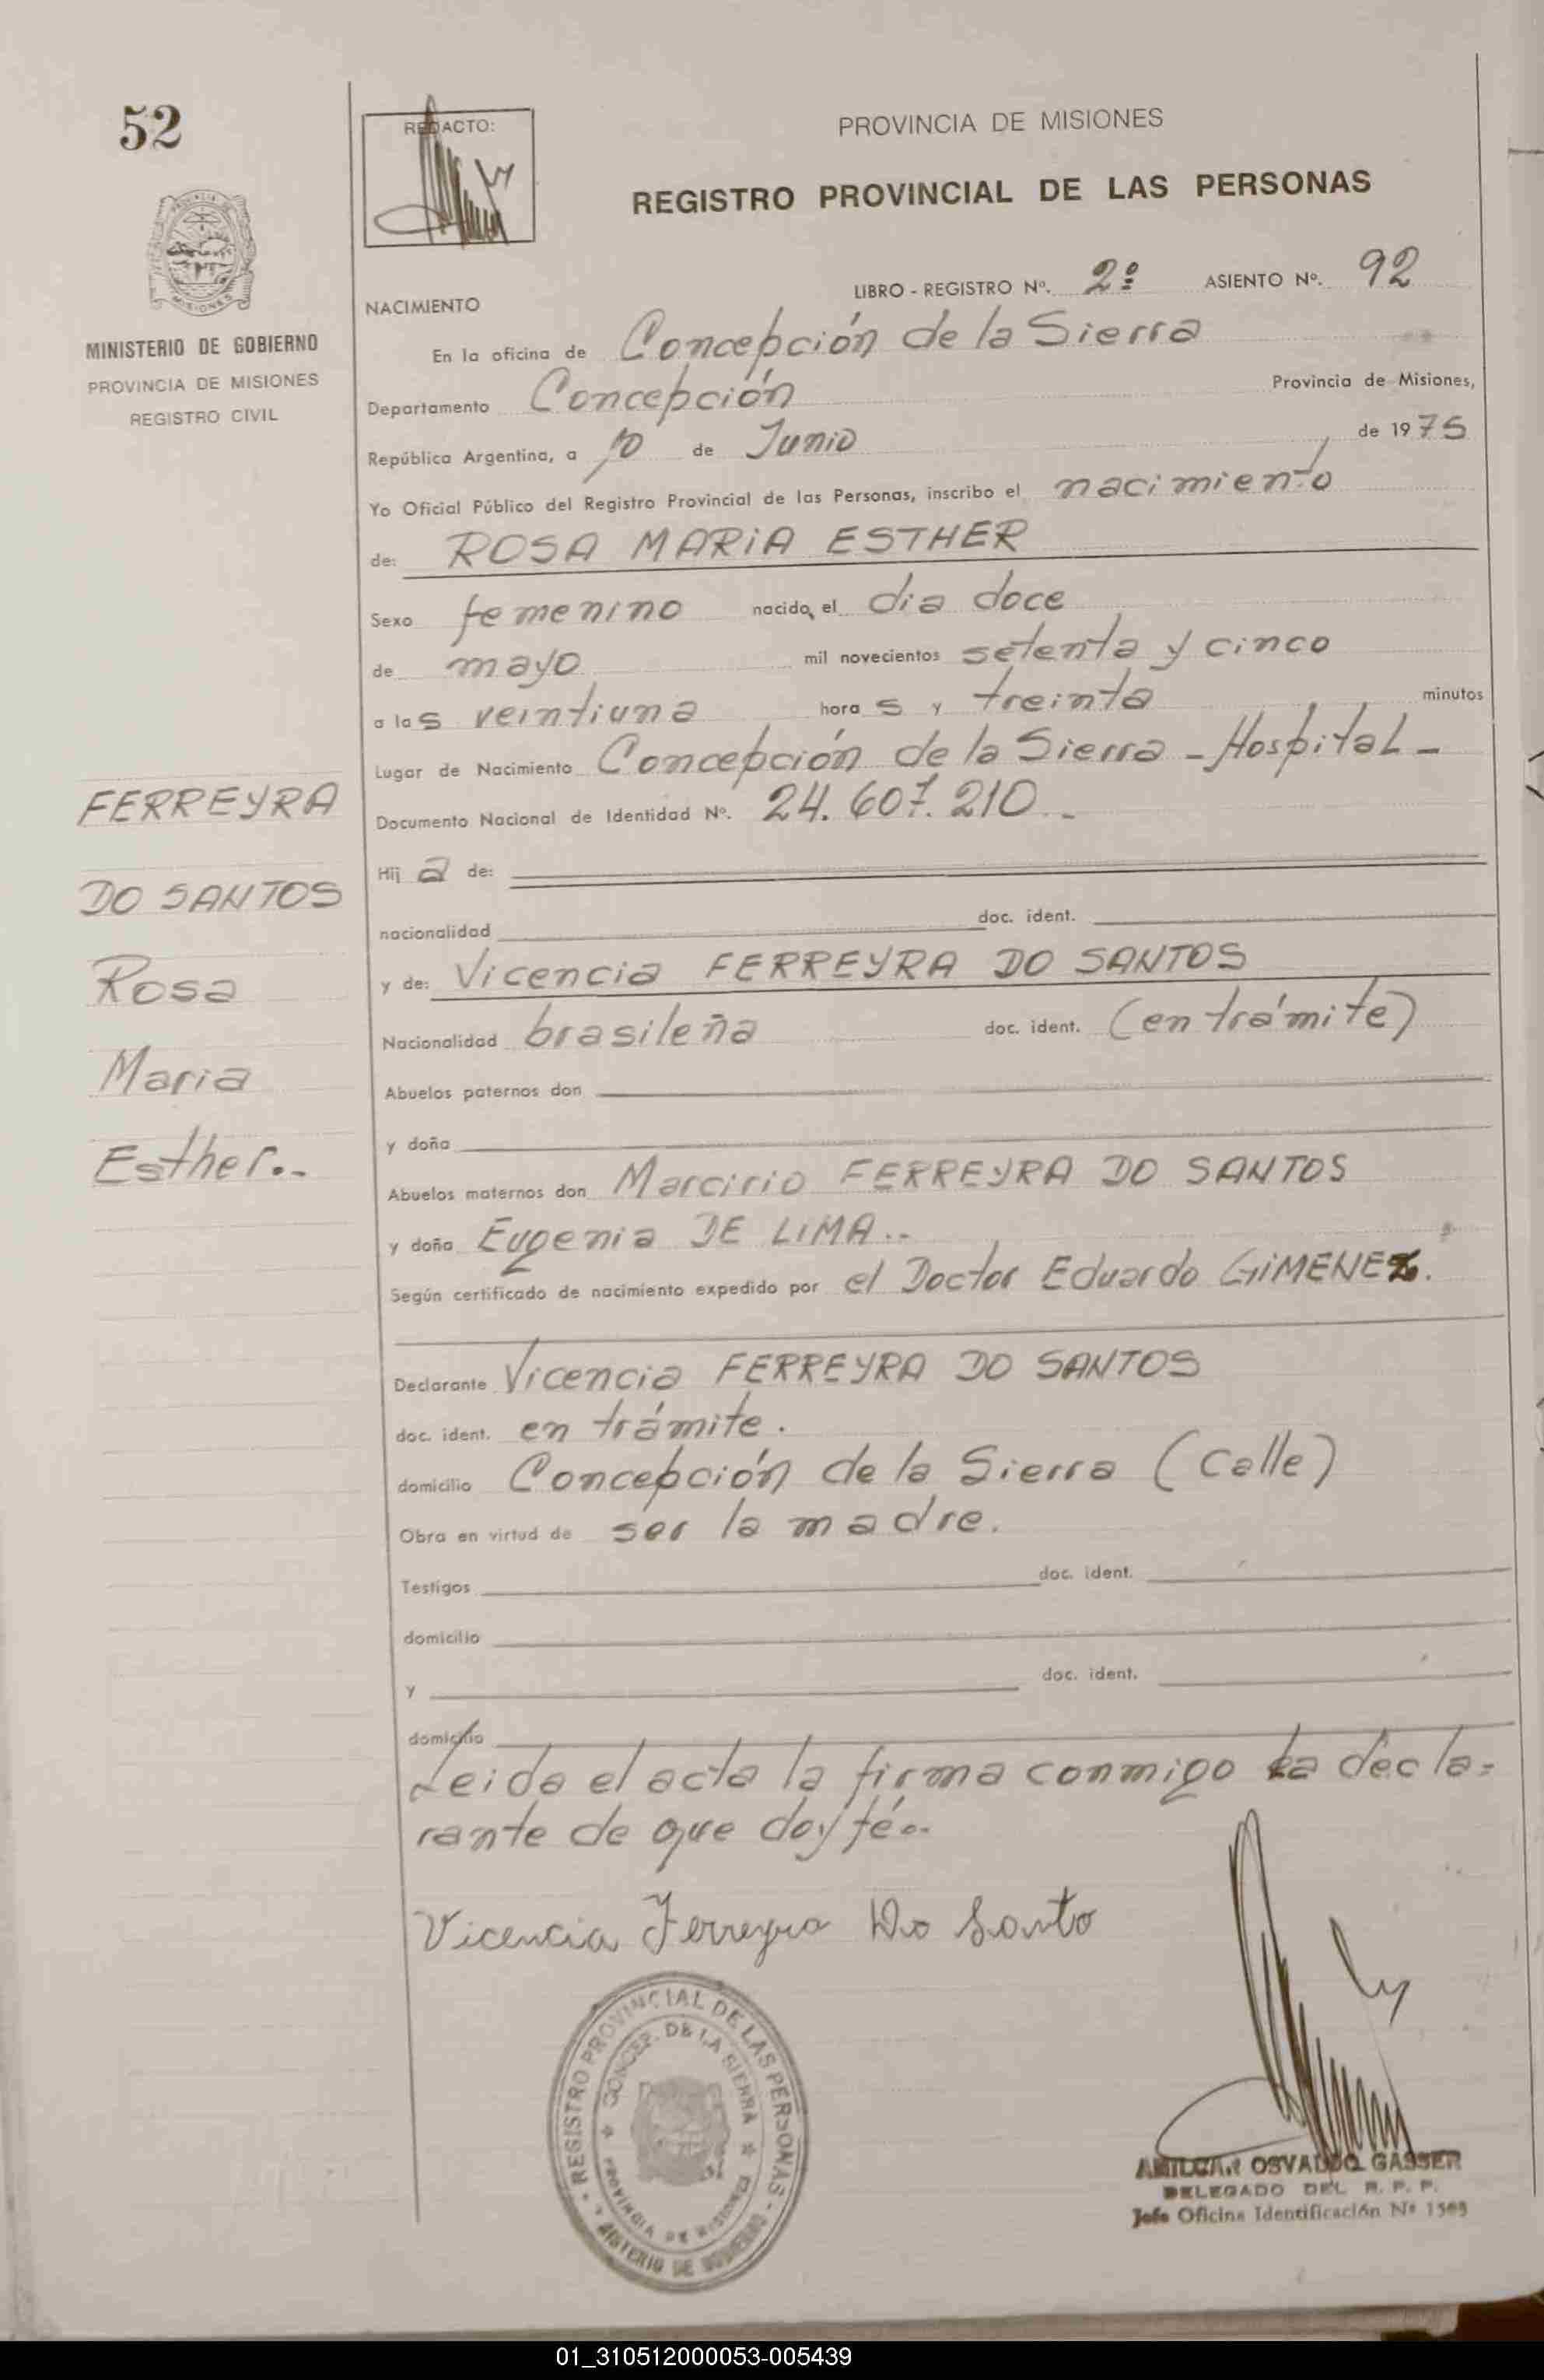 52
REDACTO:
PROVINCIA DE MISIONES
REGISTRO PROVINCIAL DE LAS PERSONAS
MISIONES
MINISTERIO DE GOBIERNO
PROVINCIA DE MISIONES
REGISTRO CIVIL
LIBRO - REGISTRO Nº. 2º ASIENTO Nº. 92
NACIMIENTO
En la oficina de Concepción de la Sierra
Departamento Concepción Provincia de Misiones,
República Argentina, a 10 de Junio de 1975
Yo Oficial Público del Registro Provincial de las Personas, inscribo el nacimiento
de: ROSA MARIA ESTHER
Sexo femenino nacido, el dia doce
de mayo mil novecientos setenta y cinco
a las veintiuna horas y treinta minutos
Lugar de Nacimiento Concepción de la Sierra - Hospital -
Documento Nacional de Identidad Nº. 24.607.210 -
Hija de:
nacionalidad doc. ident.
y de: Vicencia FERREYRA DO SANTOS
Nacionalidad brasileña doc. ident. (en trámite)
Abuelos paternos don
y doña
Abuelos maternos don Marcirio FERREYRA DO SANTOS
y doña Eugenia DE LIMA..
Según certificado de nacimiento expedido por el Doctor Eduardo GIMENEZ.
Declarante Vicencia FERREYRA DO SANTOS
doc. ident. en trámite.
domicilio Concepción de la Sierra (Calle)
Obra en virtud de ser la madre.
Testigos doc. ident.
domicilio
y doc. ident.
domicilio
Leida el acta la firma conmigo la decla-
rante de que doy fé..
FERREYRA
DO SANTOS
Rosa
Maria
Esther..
Vicencia Ferreyra Do Santo
REGISTRO PROVINCIAL DE LAS PERSONAS
CONCEP. DE LA SIERRA
PROVINCIA DE MISIONES
MINISTERIO DE GOBIERNO
AMILCAR OSVALDO GASSER
DELEGADO DEL R. P. P.
Jefe Oficina Identificación Nº 1503
01_310512000053-005439